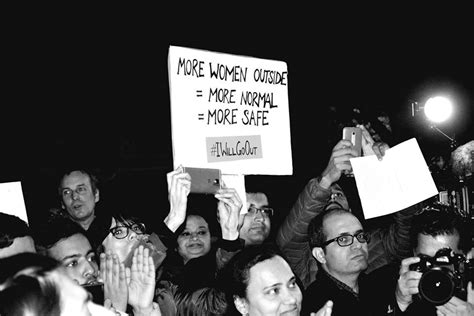 MORE WOMEN OUTSIDE
= MORE NORMAL
= MORE SAFE
#IWILLGOOUT